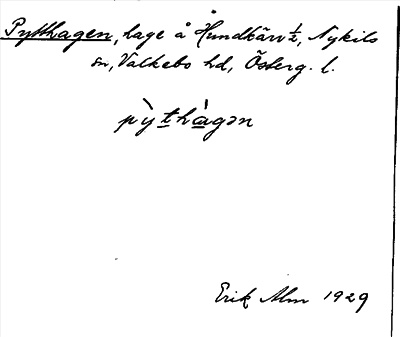 Pytthagen, hage å Hundkärr ½, Nykils
sn, Valkebo hd, Österg. l.
pỳthàgən
Erik Alm 1929